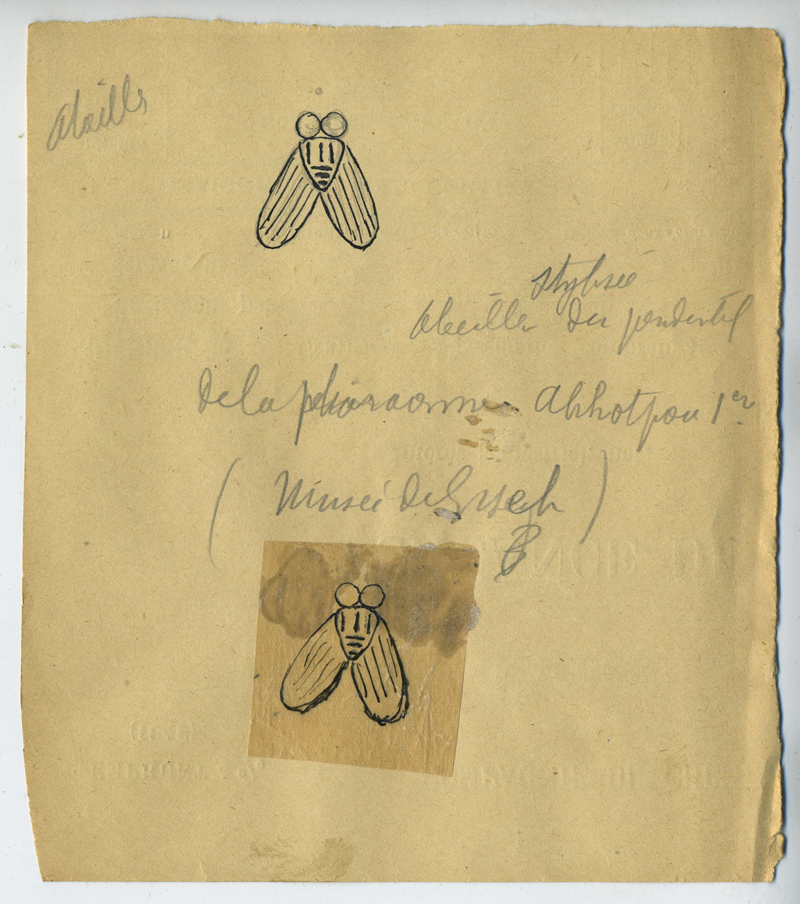 Abeille
stylisée
Abeille des pendentif
de la pharaonne Ahhotpou 1er
(Musée de Giseh)